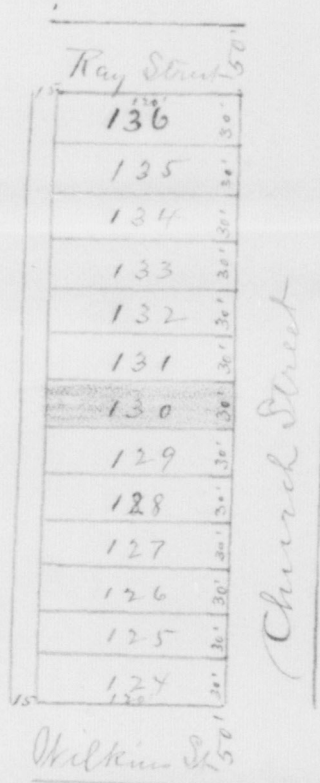 Ray Street 50'
15' 120'
136 30'
135 30'
134 30'
133 30'
132 30'
131 30'
130 30'
129 30'
128 30'
127 30'
126 30'
125 30'
124 30'
15' 120'
Wilkins St 50'
Church Street